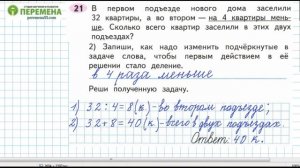 ПЕРЕМЕНА
21 1) В первом подъезде нового дома заселили
32 квартиры, а во втором — на 4 квартиры мень-
ше. Сколько всего квартир заселили в этих двух
подъездах?
2) Запиши, как надо изменить подчёркнутые в
задаче слова, чтобы первым действием в её
решении стало деление.
в 4 раза меньше
Реши полученную задачу.
1) 32 : 4 = 8 (к.) - во втором подъезде;
2) 32 + 8 = 40 (к.) - всего в двух подъездах
Ответ: 40 к.